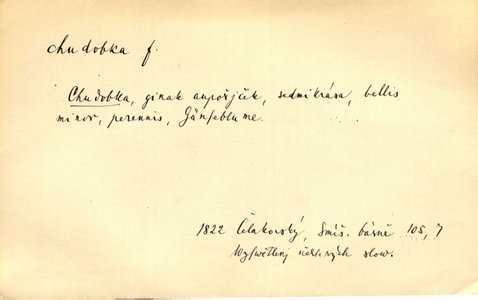 chudobka f.
Chudobka, ginak aupořjček, sedmikrása, bellis
minor, perennis, Gänseblume.
1822 Čelakovský, Smíš. básně 105, 7
Wyswětlenj některých slow.